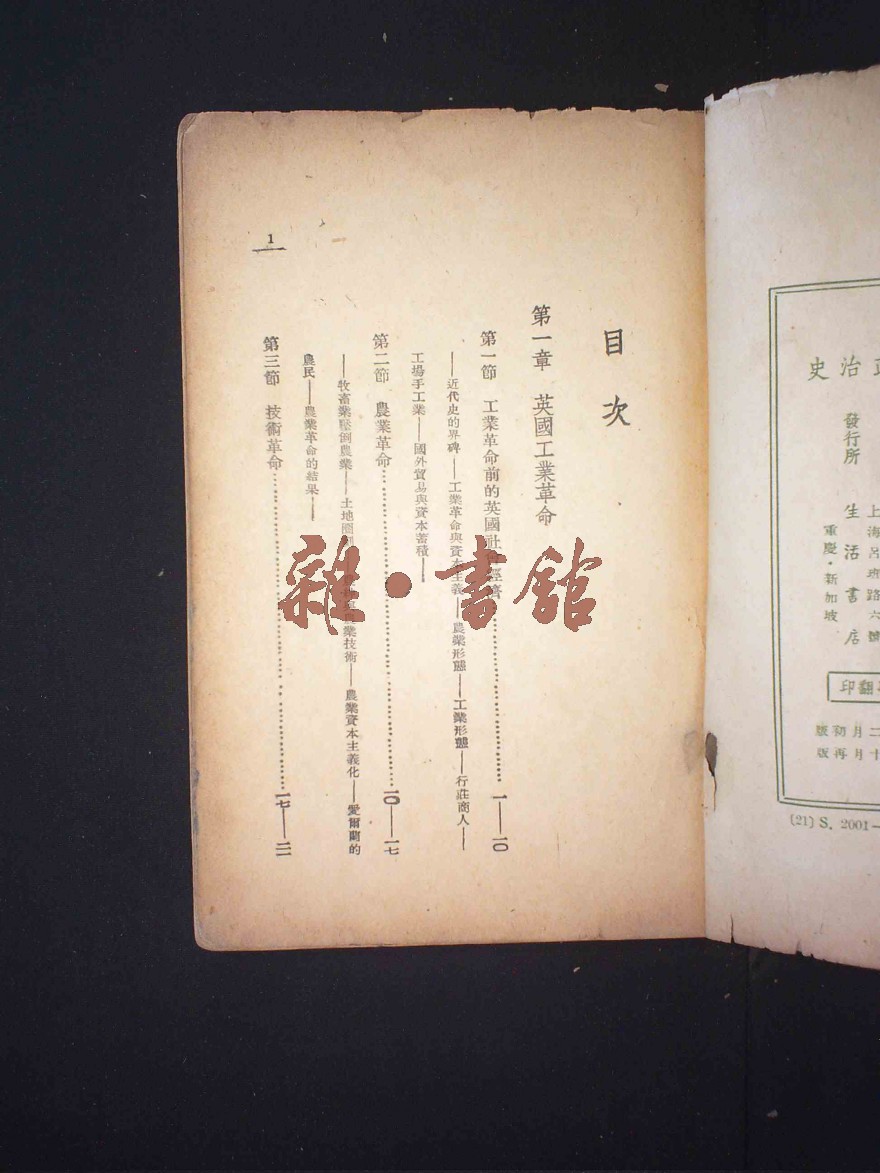 史治
發行所
生活書店
上海呂班路六號
重慶・新加坡
印翻
版初月二
版再月十
(21) S. 2001—
目次
第一章 英國工業革命
第一節 工業革命前的英國社會經濟……一——一〇
——近代史的界碑——工業革命與資本主義——農業形態——工業形態——行莊商人——
工場手工業——國外貿易與資本蓄積——
第二節 農業革命……一〇——一七
——牧畜業壓倒農業——土地圈 業技術——農業資本主義化——愛爾蘭的
農民——農業革命的結果——
第三節 技術革命……一七——二二
1
雜・書館